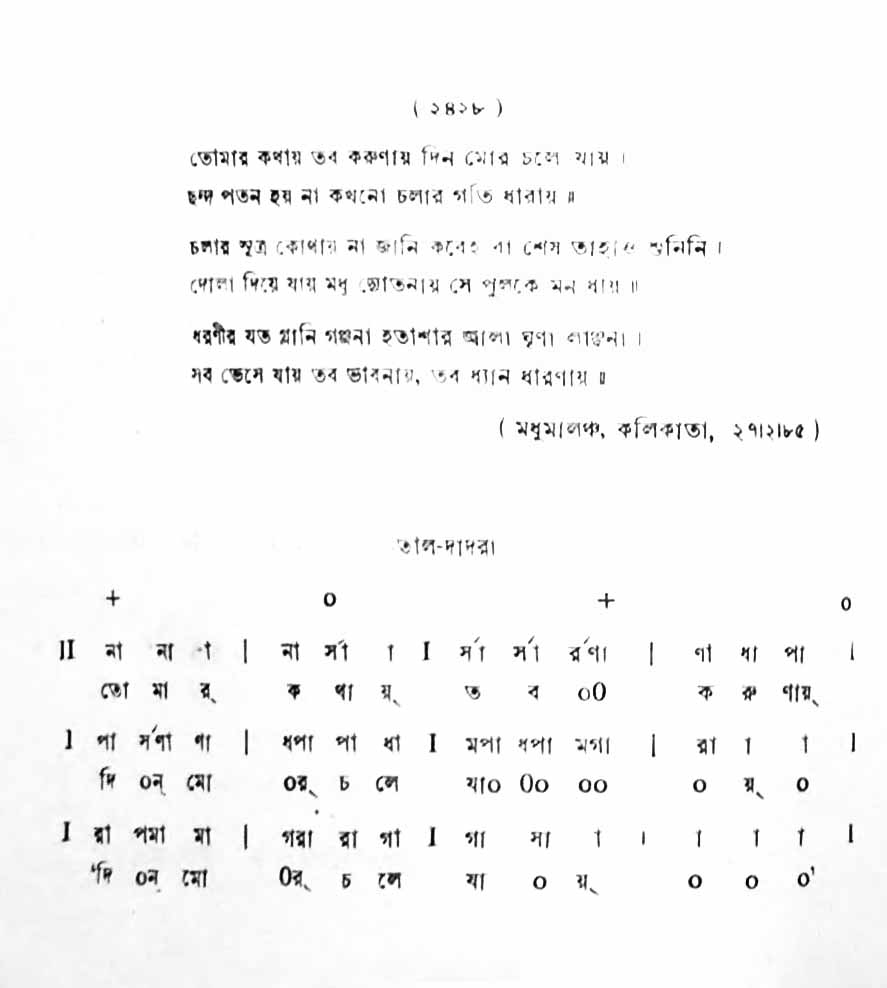 ( ২৪২৮ )
তোমার কথায় তব করুণায় দিন মোর চলে যায় ।
ছন্দ পতন হয় না কখনো চলার গতি ধারায় ॥
চলার সূত্র কোথায় না জানি কবেই বা শেষ তাহাও শুনিনি ।
দোলা দিয়ে যায় মধু দ্যোতনায় সে পুলকে মন ধায় ॥
ধরণীর যত গ্লানি গঞ্জনা হতাশার জ্বালা ঘৃণা লাঞ্ছনা ।
সব ভেসে যায় তব ভাবনায়, তব ধ্যান ধারণায় ॥
( মধুমালঞ্চ, কলিকাতা, ২৭।২।৮৫ )
তাল-দাদরা
+ o + o
II না না া | না র্সা া I র্সা র্সা র্রর্ণা | ণা ধা পা I
তো মা র্ ক থা য়্ ত ব oO ক রু ণায়্
I পা র্সণা ণা | ধপা পা ধা I মপা ধপা মগা | রা া া I
দি oন্ মো oর্ চ লে যাo Oo oo o য়্ o
I রা পমা মা | গরা রা গা I গা সা া । া া া I
'দি oন্ মো Oর্ চ লে যা o য়্ o o o'